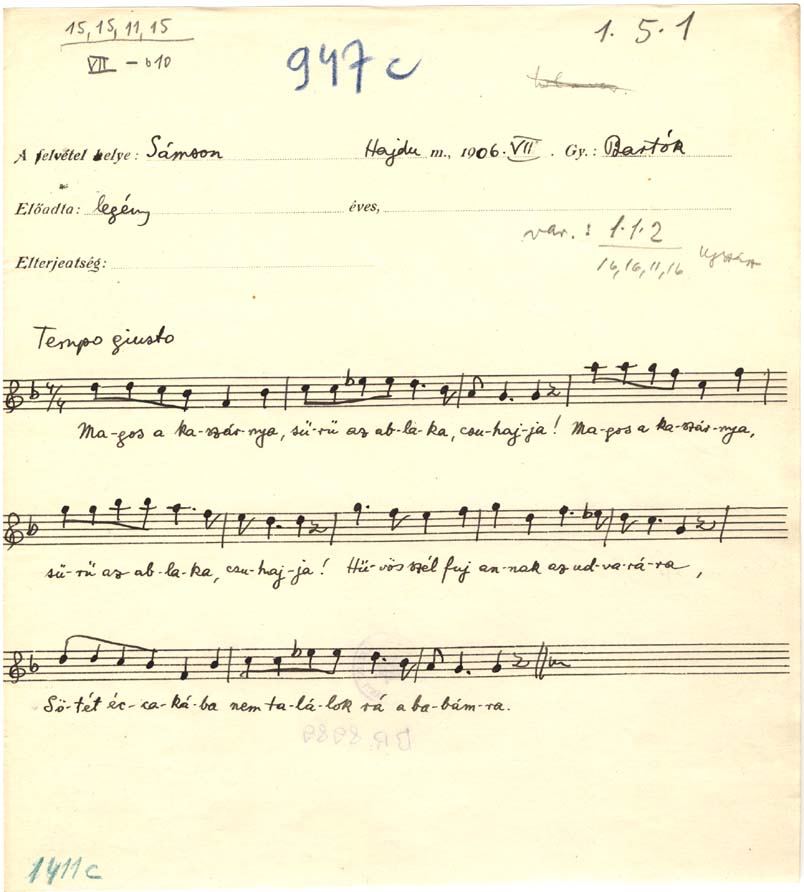 15, 15, 11, 15
VII – b10
947c
1. 5. 1
A felvétel helye: Sámson Hajdu m., 1906. VII. Gy.: Bartók
Előadta: legény éves,
var.: 1.1.2
16,16,11,16
Elterjedtség:
Tempo giusto
4/4
Ma-gos a ka-szár-nya, sü-rü az ab-la-ka, csu-haj-ja! Ma-gos a ka-szár-nya,
sü-rü az ab-la-ka, csu-haj-ja! Hü-vös szél fuj an-nak az ud-va-rá-ra,
Sö-tét éc-ca-ká-ba nem ta-lá-lok rá a ba-bám-ra.
1411c